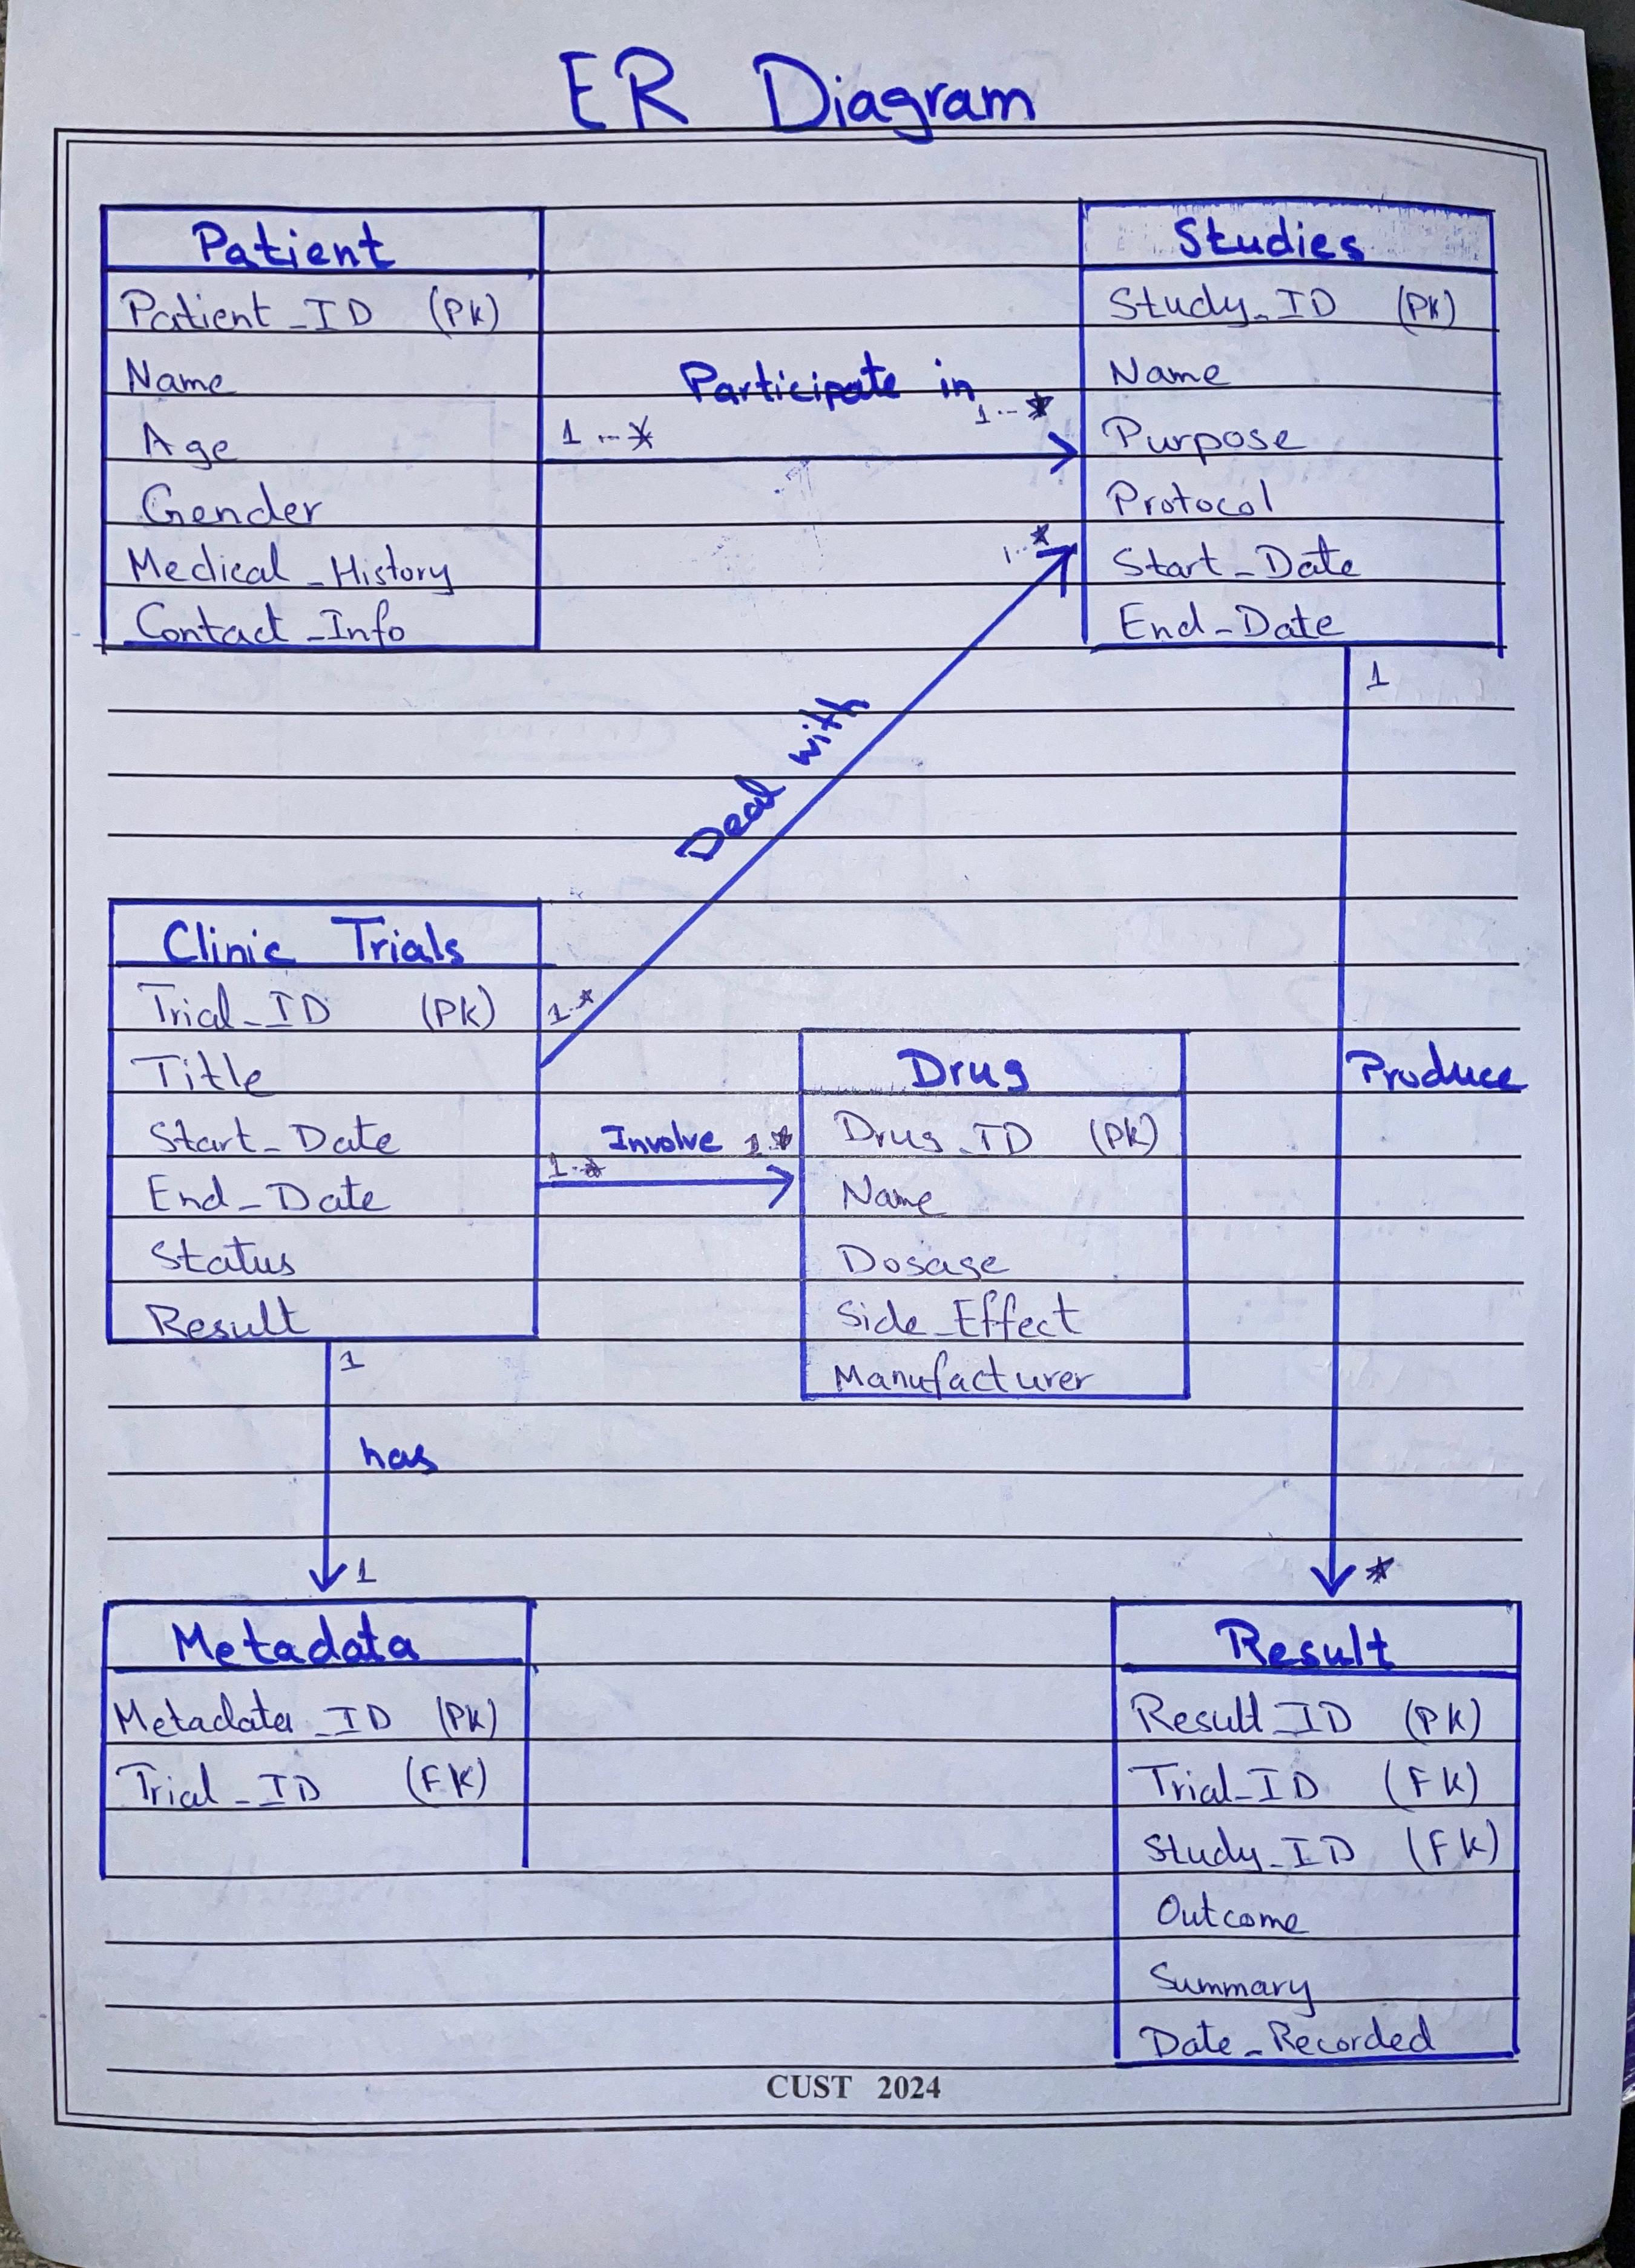 ER Diagram
Patient
Patient_ID (PK)
Name
Age
Gender
Medical_History
Contact_Info
Participate in
1..*
1..*
Studies
Study_ID (PK)
Name
Purpose
Protocol
Start_Date
End_Date
1..*
Deal with
1..*
1
Produce
*
Clinic Trials
Trial_ID (PK)
Title
Start_Date
End_Date
Status
Result
Involve
1..*
1..*
Drug
Drug_ID (PK)
Name
Dosage
Side_Effect
Manufacturer
1
has
1
Metadata
Metadata_ID (PK)
Trial_ID (FK)
Result
Result_ID (PK)
Trial_ID (FK)
Study_ID (FK)
Outcome
Summary
Date_Recorded
CUST 2024